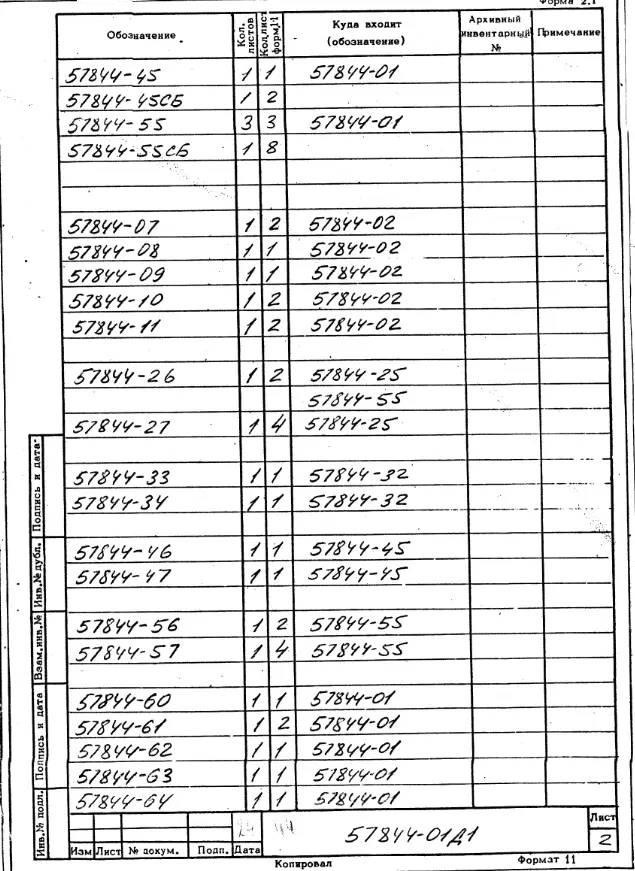 Форма 2.1
Обозначение Кол. листов Кол. лист форм. 11 Куда входит (обозначение) Архивный инвентарный № Примечание
57844-45 1 1 57844-01
57844-45СБ 1 2
57844-55 3 3 57844-01
57844-55СБ 1 8
57844-07 1 2 57844-02
57844-08 1 1 57844-02
57844-09 1 1 57844-02
57844-10 1 2 57844-02
57844-11 1 2 57844-02
57844-26 1 2 57844-25
57844-55
57844-27 1 4 57844-25
57844-33 1 1 57844-32
57844-34 1 1 57844-32
57844-46 1 1 57844-45
57844-47 1 1 57844-45
57844-56 1 2 57844-55
57844-57 1 4 57844-55
57844-60 1 1 57844-01
57844-61 1 2 57844-01
57844-62 1 1 57844-01
57844-63 1 1 57844-01
57844-64 1 1 57844-01
Инв.№ подл. Подпись и дата Взам.инв.№ Инв.№ дубл. Подпись и дата
57844-01Д1
Лист
2
Изм Лист № докум. Подп. Дата
Копировал Формат 11